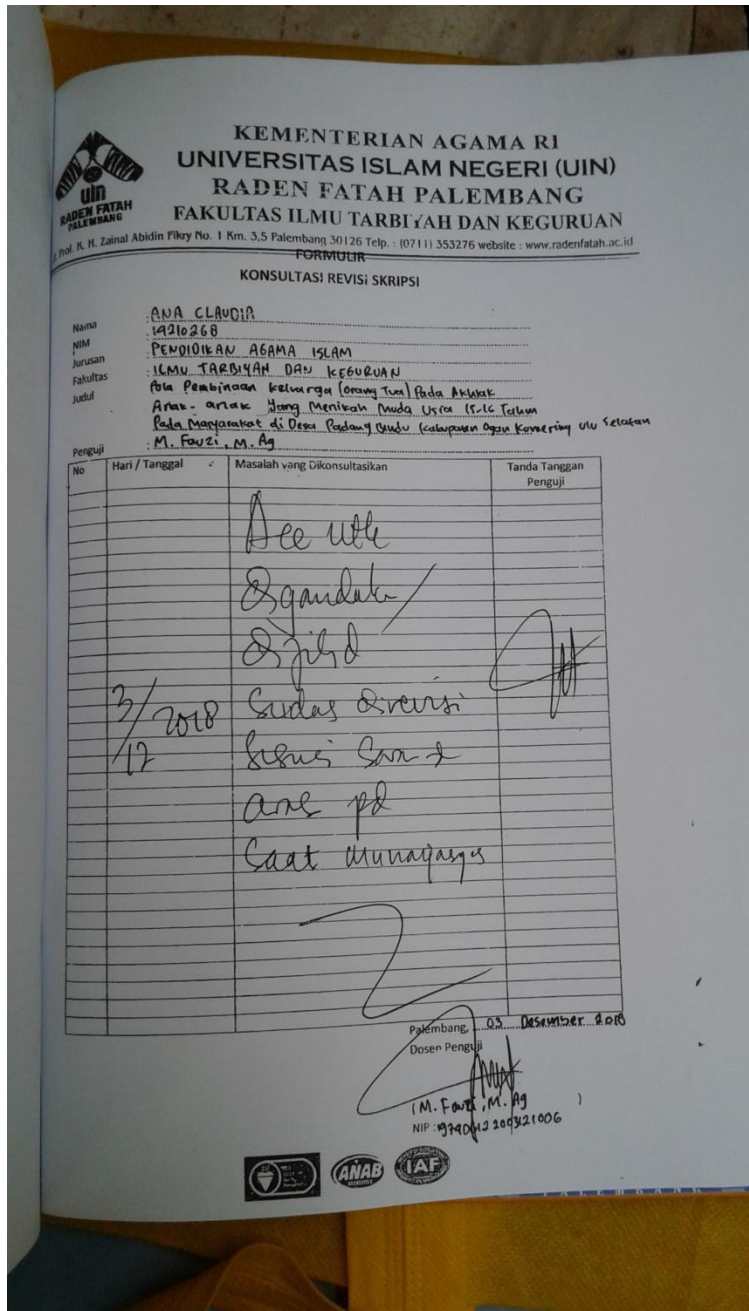 KEMENTERIAN AGAMA RI
UNIVERSITAS ISLAM NEGERI (UIN)
RADEN FATAH PALEMBANG
FAKULTAS ILMU TARBIYAH DAN KEGURUAN
uin
RADEN FATAH
PALEMBANG
Prof. K. H. Zainal Abidin Fikry No. 1 Km. 3,5 Palembang 30126 Telp. : (0711) 353276 website : www.radenfatah.ac.id
FORMULIR
KONSULTASI REVISI SKRIPSI
Nama : ANA CLAUDIA
NIM : 14210268
Jurusan : PENDIDIKAN AGAMA ISLAM
Fakultas : ILMU TARBIYAH DAN KEGURUAN
Judul : Pola Pembinaan Keluarga (Orang Tua) Pada Akhlak
Anak-anak Yang Menikah Muda Usia 15-16 Tahun
Pada Masyarakat di Desa Padang Bindu Kabupaten Ogan Komering Ulu Selatan
Penguji : M. Fauzi, M. Ag
No Hari / Tanggal Masalah yang Dikonsultasikan Tanda Tanggan Penguji
Acc utk
digandakan/
dijilid
3/12 2018 Sudah direvisi
Sesuai
pd
Saat Munaqasyah
Palembang, 03 Desember 2018
Dosen Penguji
(M. Fauzi, M. Ag )
NIP :
ANAB
IAF